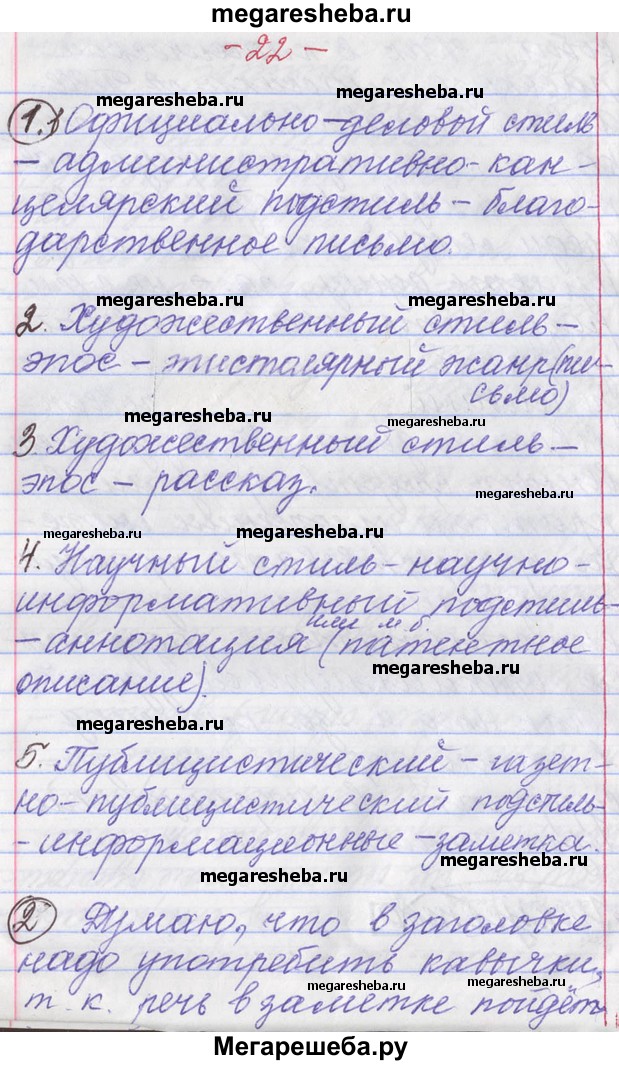 megaresheba.ru
- 22 -
megaresheba.ru megaresheba.ru
1. 1 Официально-деловой стиль
- административно-кан-
целярский подстиль - благо-
дарственное письмо.
megaresheba.ru megaresheba.ru
2. Художественный стиль -
эпос - эпистолярный жанр (пи-
сьмо)
megaresheba.ru megaresheba.ru
3 Художественный стиль -
эпос - рассказ.
megaresheba.ru
megaresheba.ru megaresheba.ru
4. Научный стиль - научно-
информативный подстиль -
или м б
- аннотация (патентное
описание).
megaresheba.ru megaresheba.ru
5. Публицистический - газет-
но-публицистический подстиль
- информационные - заметка.
megaresheba.ru megaresheba.ru
2 Думаю, что в заголовке
надо употребить кавычки,
т. к. речь в заметке пойдёт
megaresheba.ru megaresheba.ru
Мегарешеба.ру